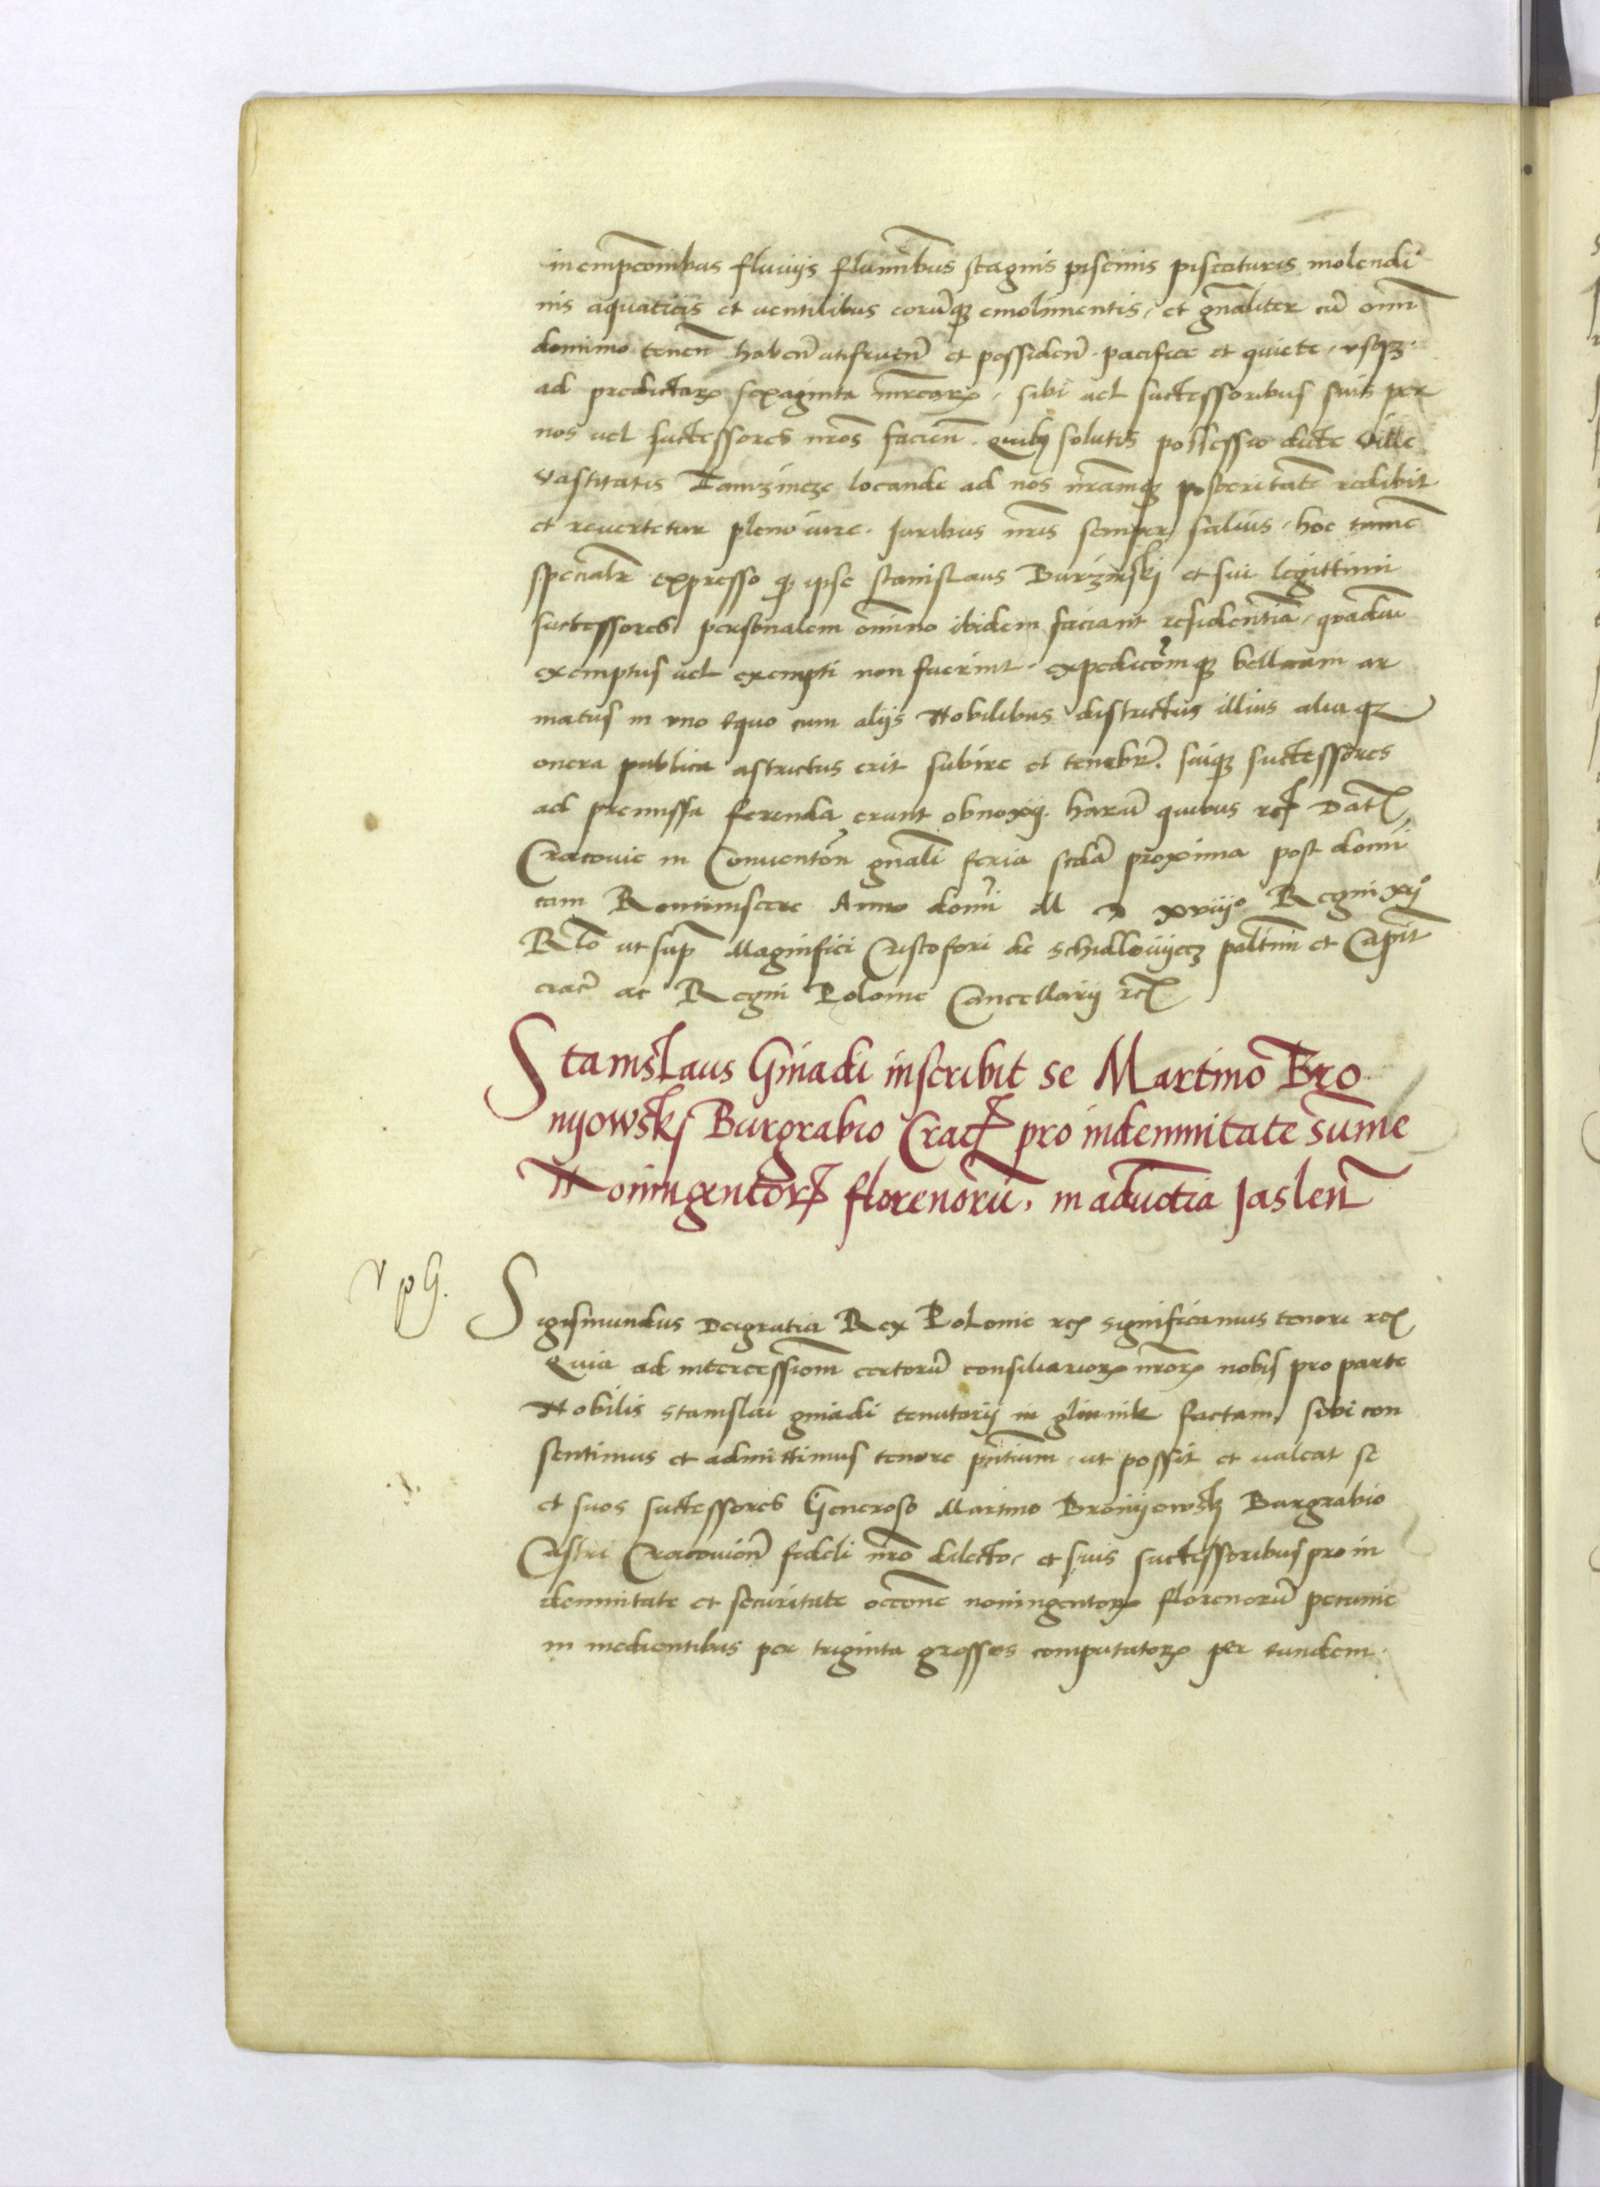 inempc͠onibus fluvijs flumi͠bus stagnis piscinis piscaturis molendi
nis aquaticis et ventilibus eorumq͠ꝫ emolimentis, et gn͠aliter cu͠ omni͠
dominio tenen͠ haben͠ utifruen͠ et possiden͠. pacifice et quiete, usqꝫ
ad predictarꝝ sexaginta mr͠carꝝ, sibi vel successoribus suis per
nos vel successores nr͠os facien͠. Quibꝫ solutis possessio dicte ville
vastitatis locande ad nos nr͠amqꝫ posteritate͠ redibit
et revertetur pleno iure. Juribus nr͠is semper salvis, hoc tame͠
specialr͠ expresso qꝫ ipse Stanislaus Burzinskj et sui legittimi
successores personalem om͠ino ibidem faciant residentia͠, quadiu͠
exemptus vel exempti non fuerint. expedico͠mqꝫ bellicam ar
matus in vno equo cum alijs Nobilibus districtus illius aliaqꝫ
onera publica astrictus erit subire et tenebr͠. suiqꝫ successores
ad premissa ferenda erunt obnoxij. haru͠ quibus rcꝭ Datꝭ
Cracovie in Convento͠n gn͠ali feria scd͠a proxima post domi͠
cam Reminiscere Anno domi͠ M D xviij° Regni xij°
Rl͠o ut sup͠ Magnifici Cristofori de Schidlovijecz palt͠ini et Capit͠
crac͠ ac Regni Polonie Cancellarij rcꝭ
Stanislaus Gniadi inscribit se Martino Bro
nijowskj Burgrabio Cracꝭ pro indemnitate su͠me
Noningento͠rꝝ florenoru͠. in advoc͠tia Jaslen͠
V p G.
Sigismundus Deigratia Rex Polonie rcꝭ significamus tenore rcꝭ
Quia ad intercession͠em certoru͠ consiliariorꝝ nr͠orꝝ nobis pro parte
Nobilis Stanislai gniadi tenutarij in glinnik factam, sibi con
sentimus et admittimus tenore pn͠tium, ut possit et valeat se
et suos successores Generoso Martino Bronijowskj Burgrabio
Castri Cracovien͠ fideli nr͠o dilecto, et suis successoribus pro in
demnitate et securitate occo͠ne noningentorꝝ florenoru͠ pecunie
in medientibus per triginta grossos computatorꝝ per eundem